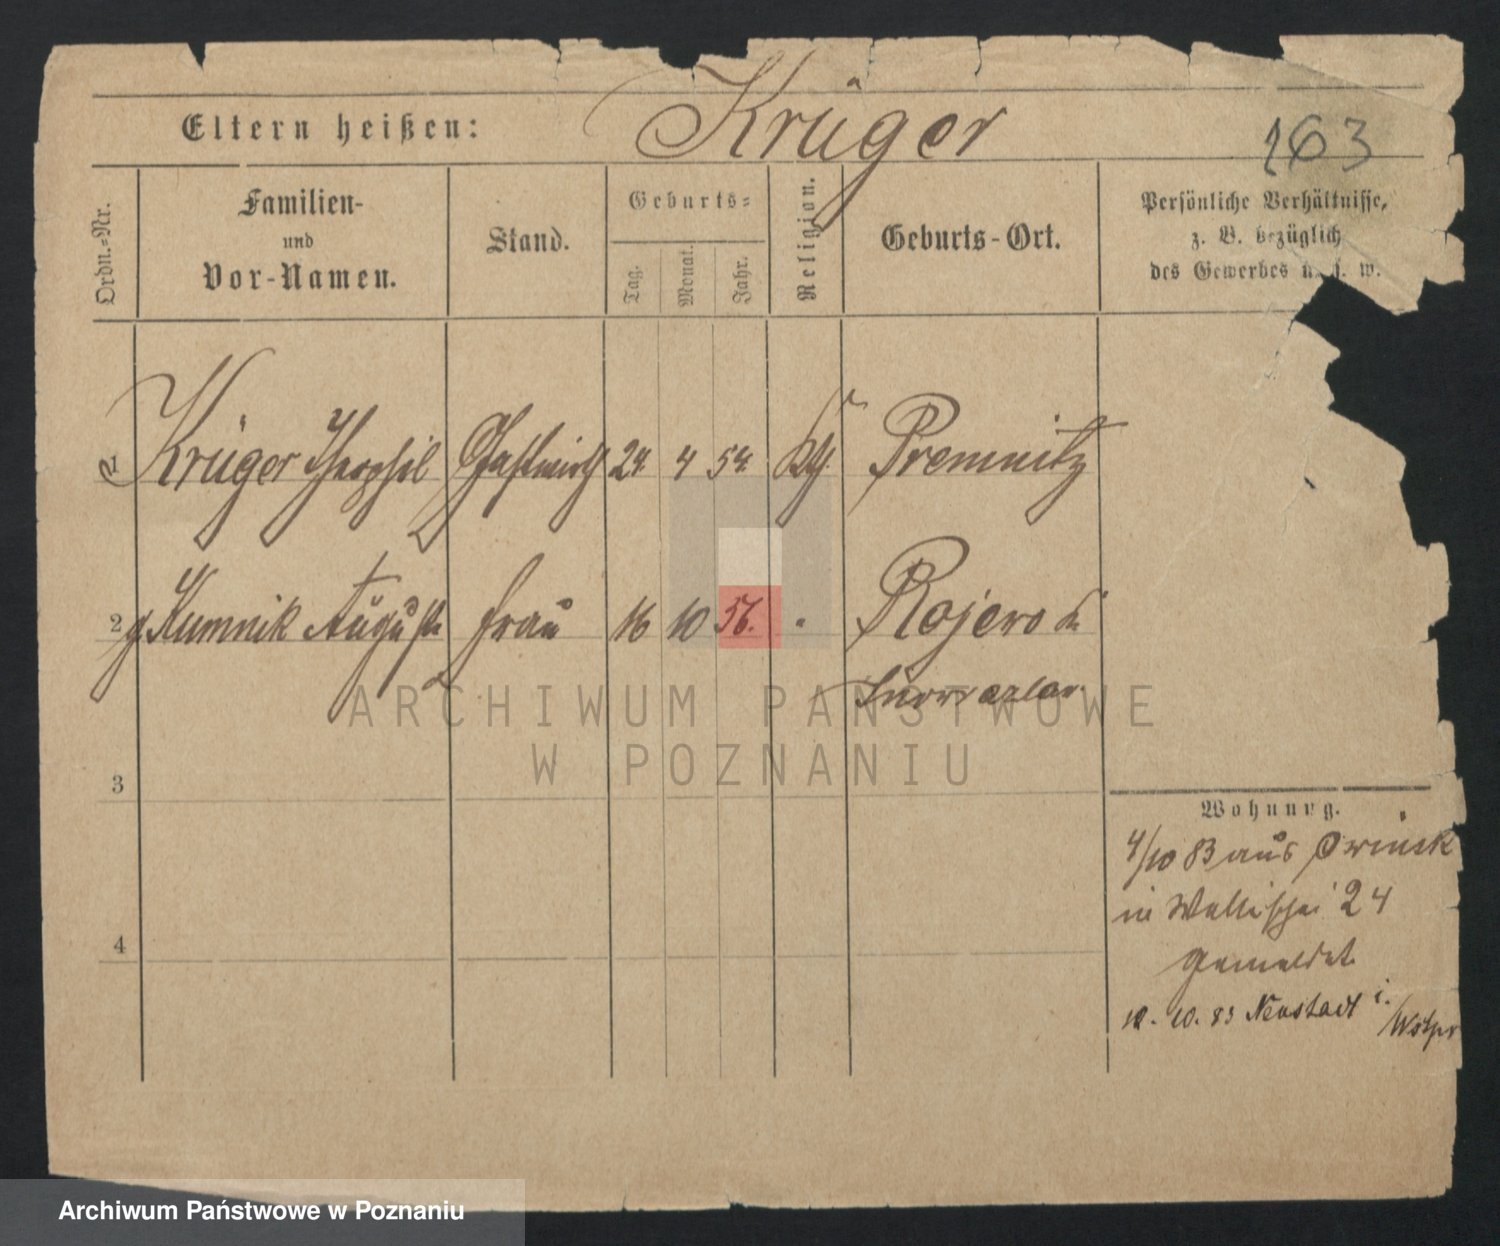 Eltern heißen: Krüger
163
Ordn.-Nr.
Familien-
und
Vor-Namen.
Stand.
Geburts-
Tag.
Monat.
Jahr.
Religion.
Geburts-Ort.
Persönliche Verhältnisse,
z. B. bezüglich
des Gewerbes u. s. w.
1 Krüger Theophil Gastwirth 24 4 54 Premnitz
2 g. Kumnik Auguste Frau 16 10 56.
Inowrazlaw
3
4
Wohnung.
4/10 83 aus Owinsk
in Wallischei 24
gemeldet
12. 10. 83 Neustadt i. Wstpr
ARCHIWUM PAŃSTWOWE
W POZNANIU
Archiwum Państwowe w Poznaniu